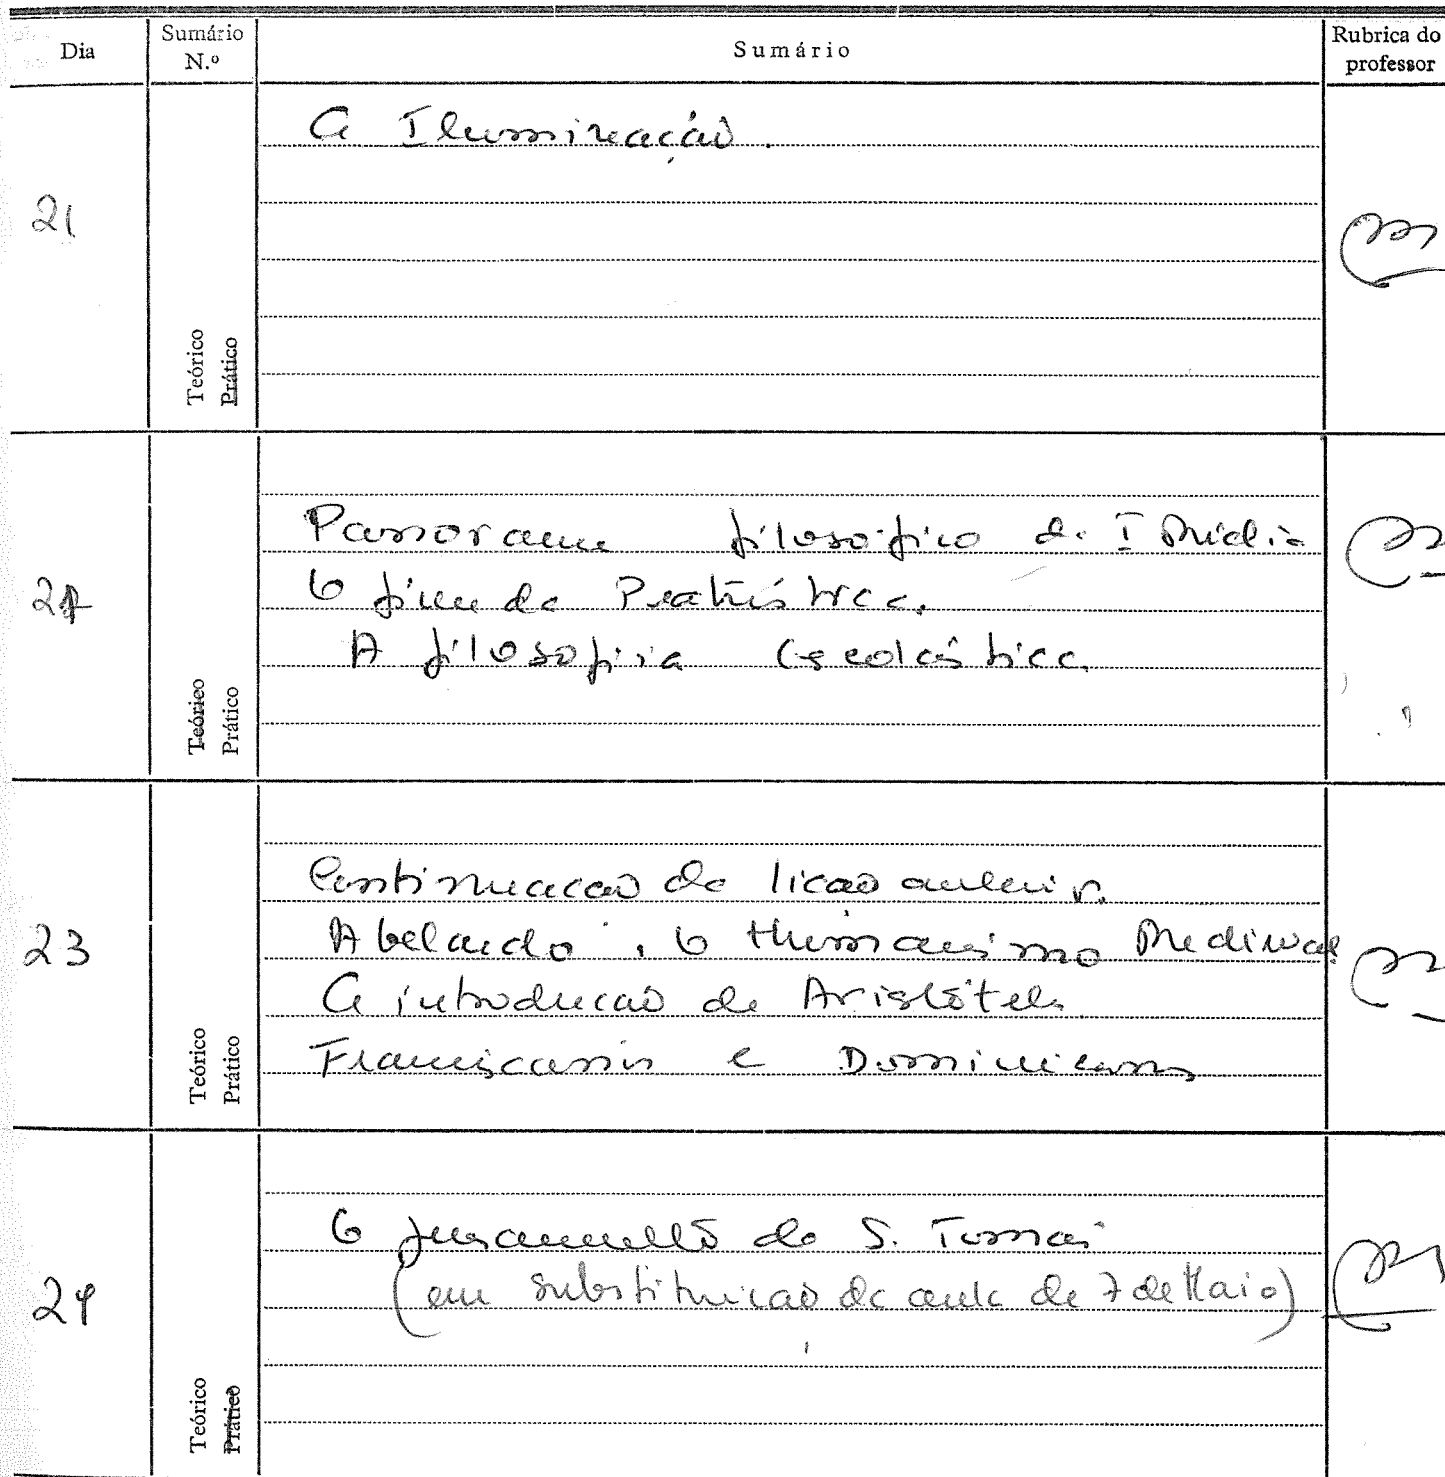 Dia
Sumário N.º
Sumário
Rubrica do professor
21
Teórico
Prático
A Iluminação.
Teórico
Prático
Panorama filosófico da I Média
O fim da Patrística.
A filosofia Escolástica.
23
Teórico
Prático
Continuação da lição anterior.
Abelardo. O Humanismo Medieval
A introdução de Aristóteles
Franciscanos e Dominicanos
24
Teórico
Prático
O pensamento de S. Tomás
(em substituição da aula de 7 de Maio)